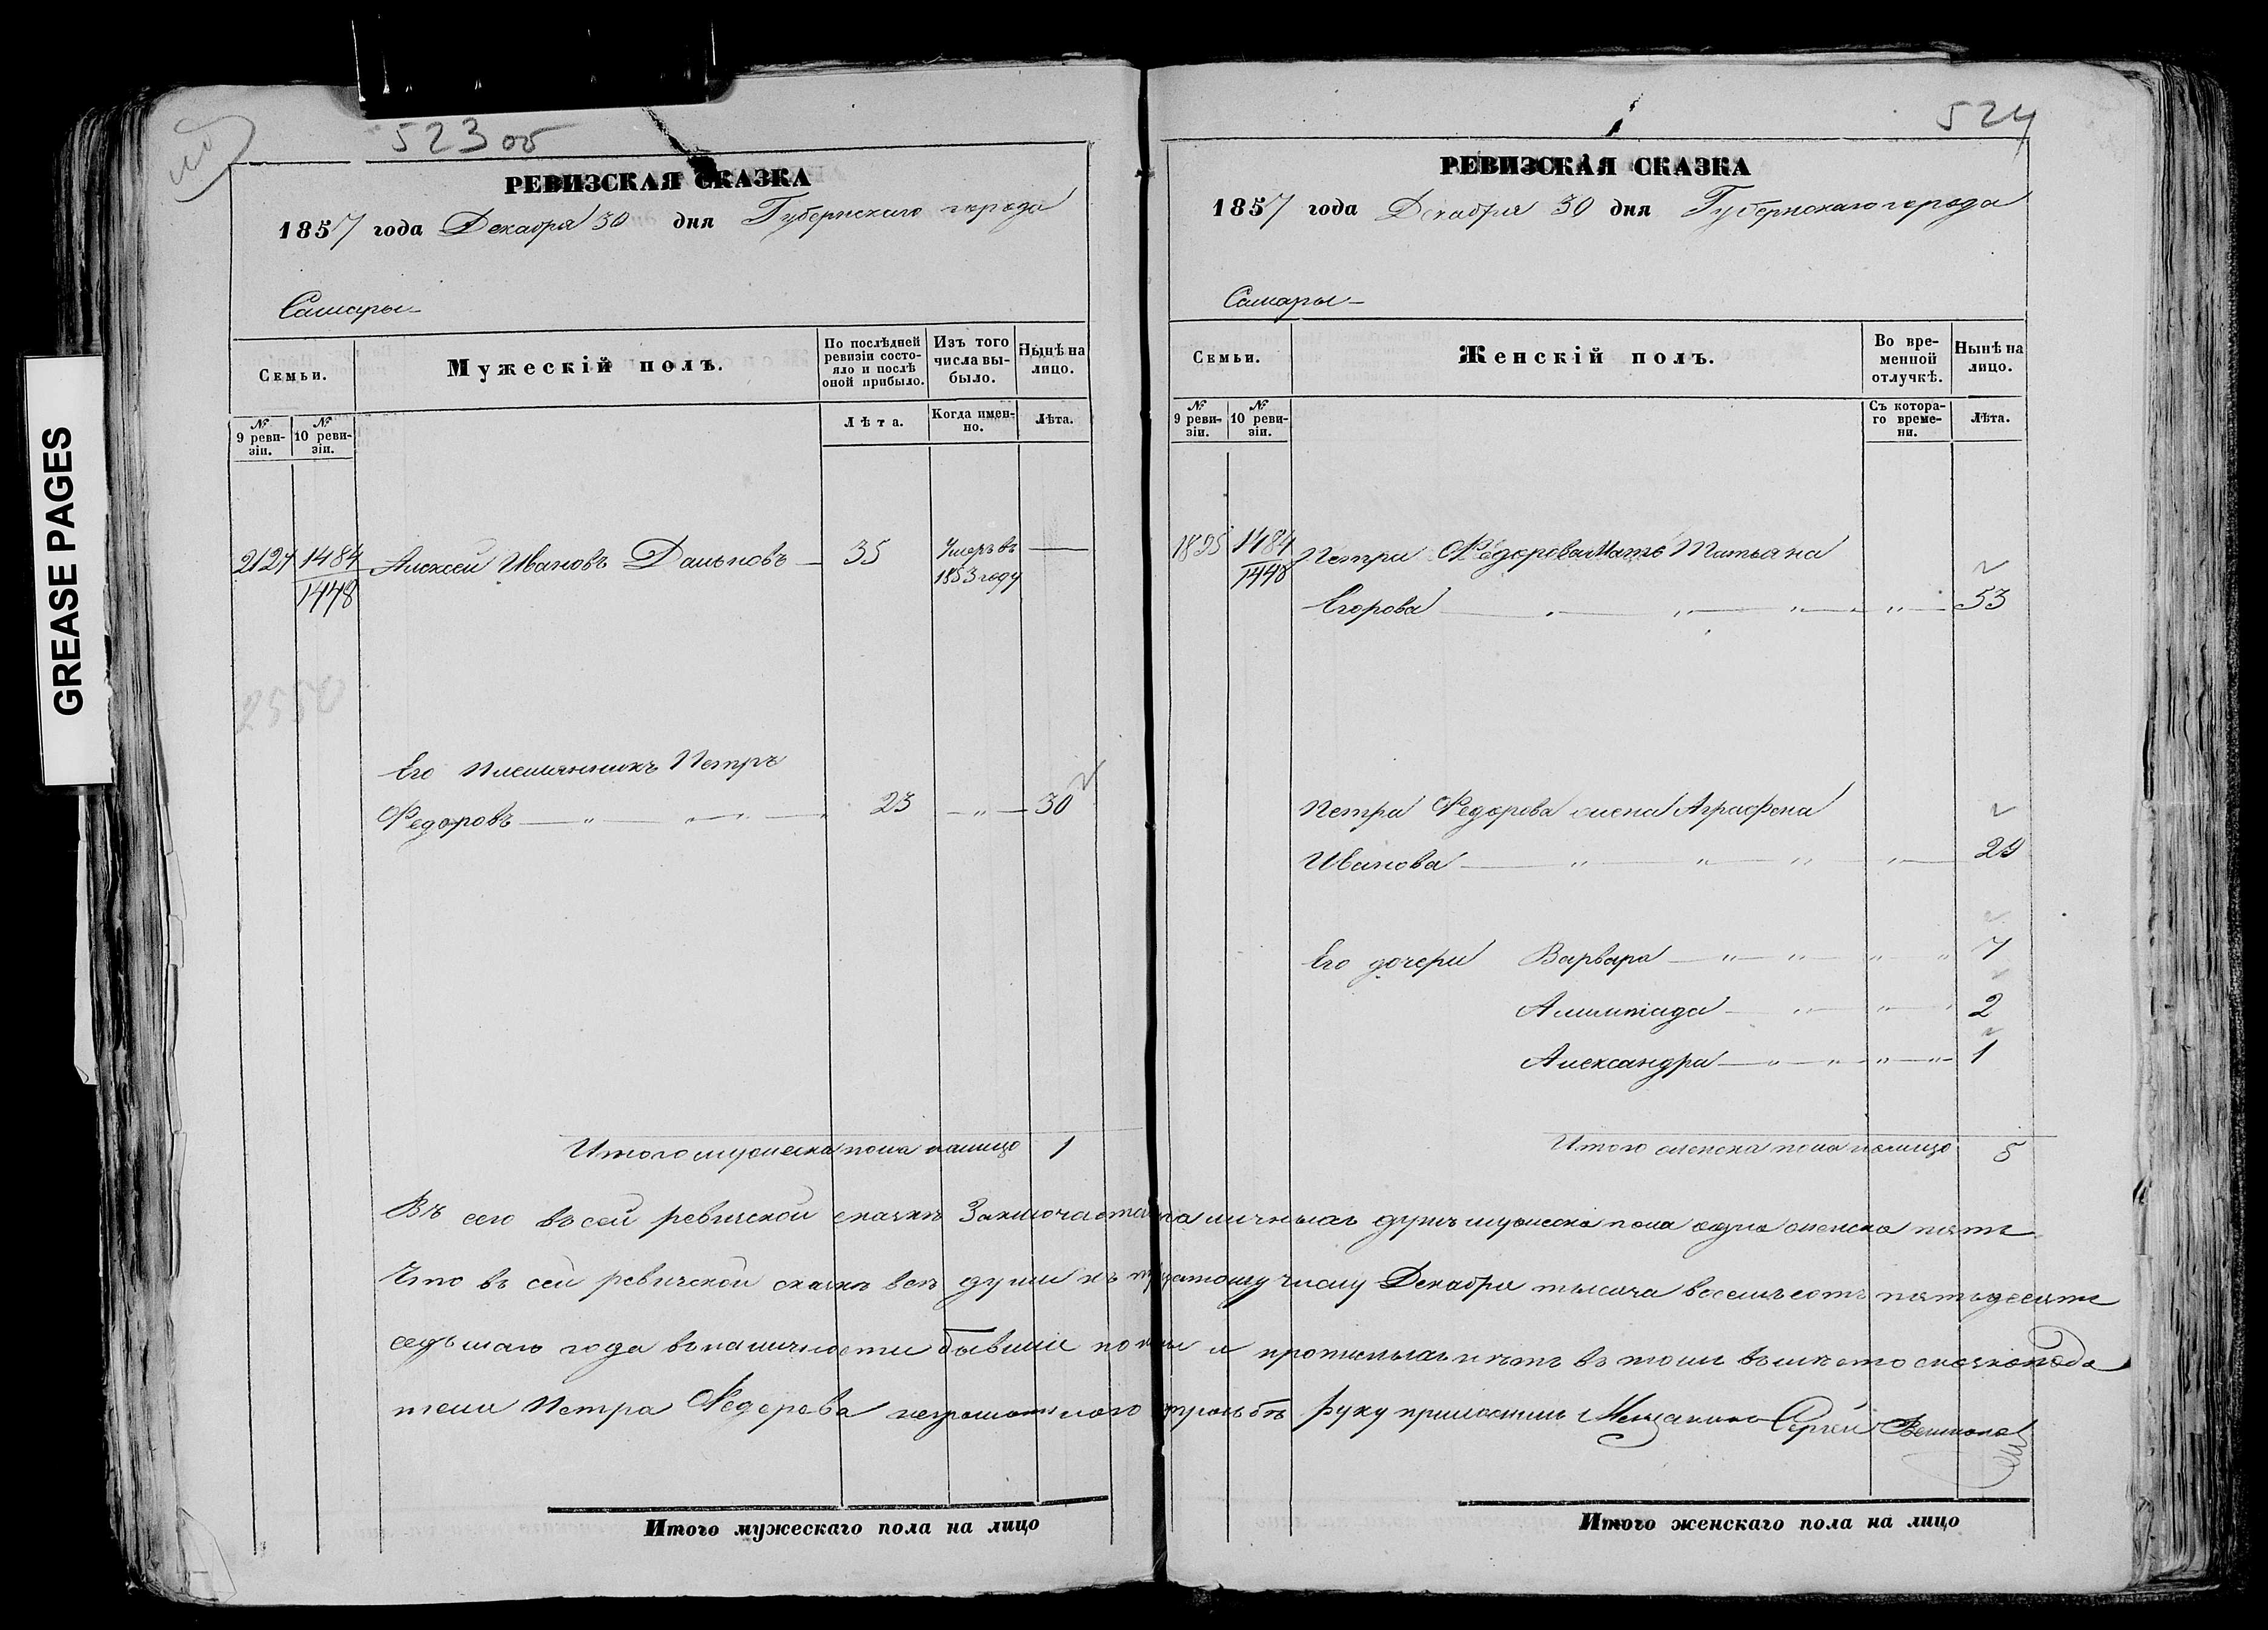 GREASE PAGES
523 об
РЕВИЗСКАЯ СКАЗКА
1857 года Декабря 30 дня Губернскаго города
Самары
Семьи.
Мужескій полъ.
По послѣдней ревизіи состояло и послѣ оной прибыло.
Изъ того числа выбыло.
Нынѣ на лицо.
№ 9 ревизіи.
№ 10 ревизіи.
Лѣта.
Когда именно.
Лѣта.
2127 1484 Алексей Ивановъ 35 Умеръ въ
1448 1853 году
2550
Его племянникъ Петръ
Федоровъ 23 30
Итого мужеска пола налицо 1
524
РЕВИЗСКАЯ СКАЗКА
1857 года Декабря 30 дня Губернскаго города
Самары
Семьи.
Женскій полъ.
Во временной отлучкѣ.
Нынѣ на лицо.
№ 9 ревизіи.
№ 10 ревизіи.
Съ котораго времени.
Лѣта.
1825 1484 Петра Федорова Мать Татьяна
1448
Егорова 53
Петра Федорова жена Аграфена
Иванова 29
Его дочери Варвара 7
2
Александра 1
Итого женска пола налицо 5
Въ сей ревизской сказкѣ Заключается наличныхъ душъ мужеска пола одна женска пять
Что въ сей ревизской сказкѣ всѣ души къ тридцатому числу Декабря тысяча восемьсотъ пятьдесятъ
седьмаго года въ наличности бывшіе и прописныхъ нѣтъ въ томъ вмѣсто сказкопода
теля Петра Федорова неграмотного прозьбѣ руку приложилъ Мещанинъ Сергей
Итого мужескаго пола на лицо
Итого женскаго пола на лицо